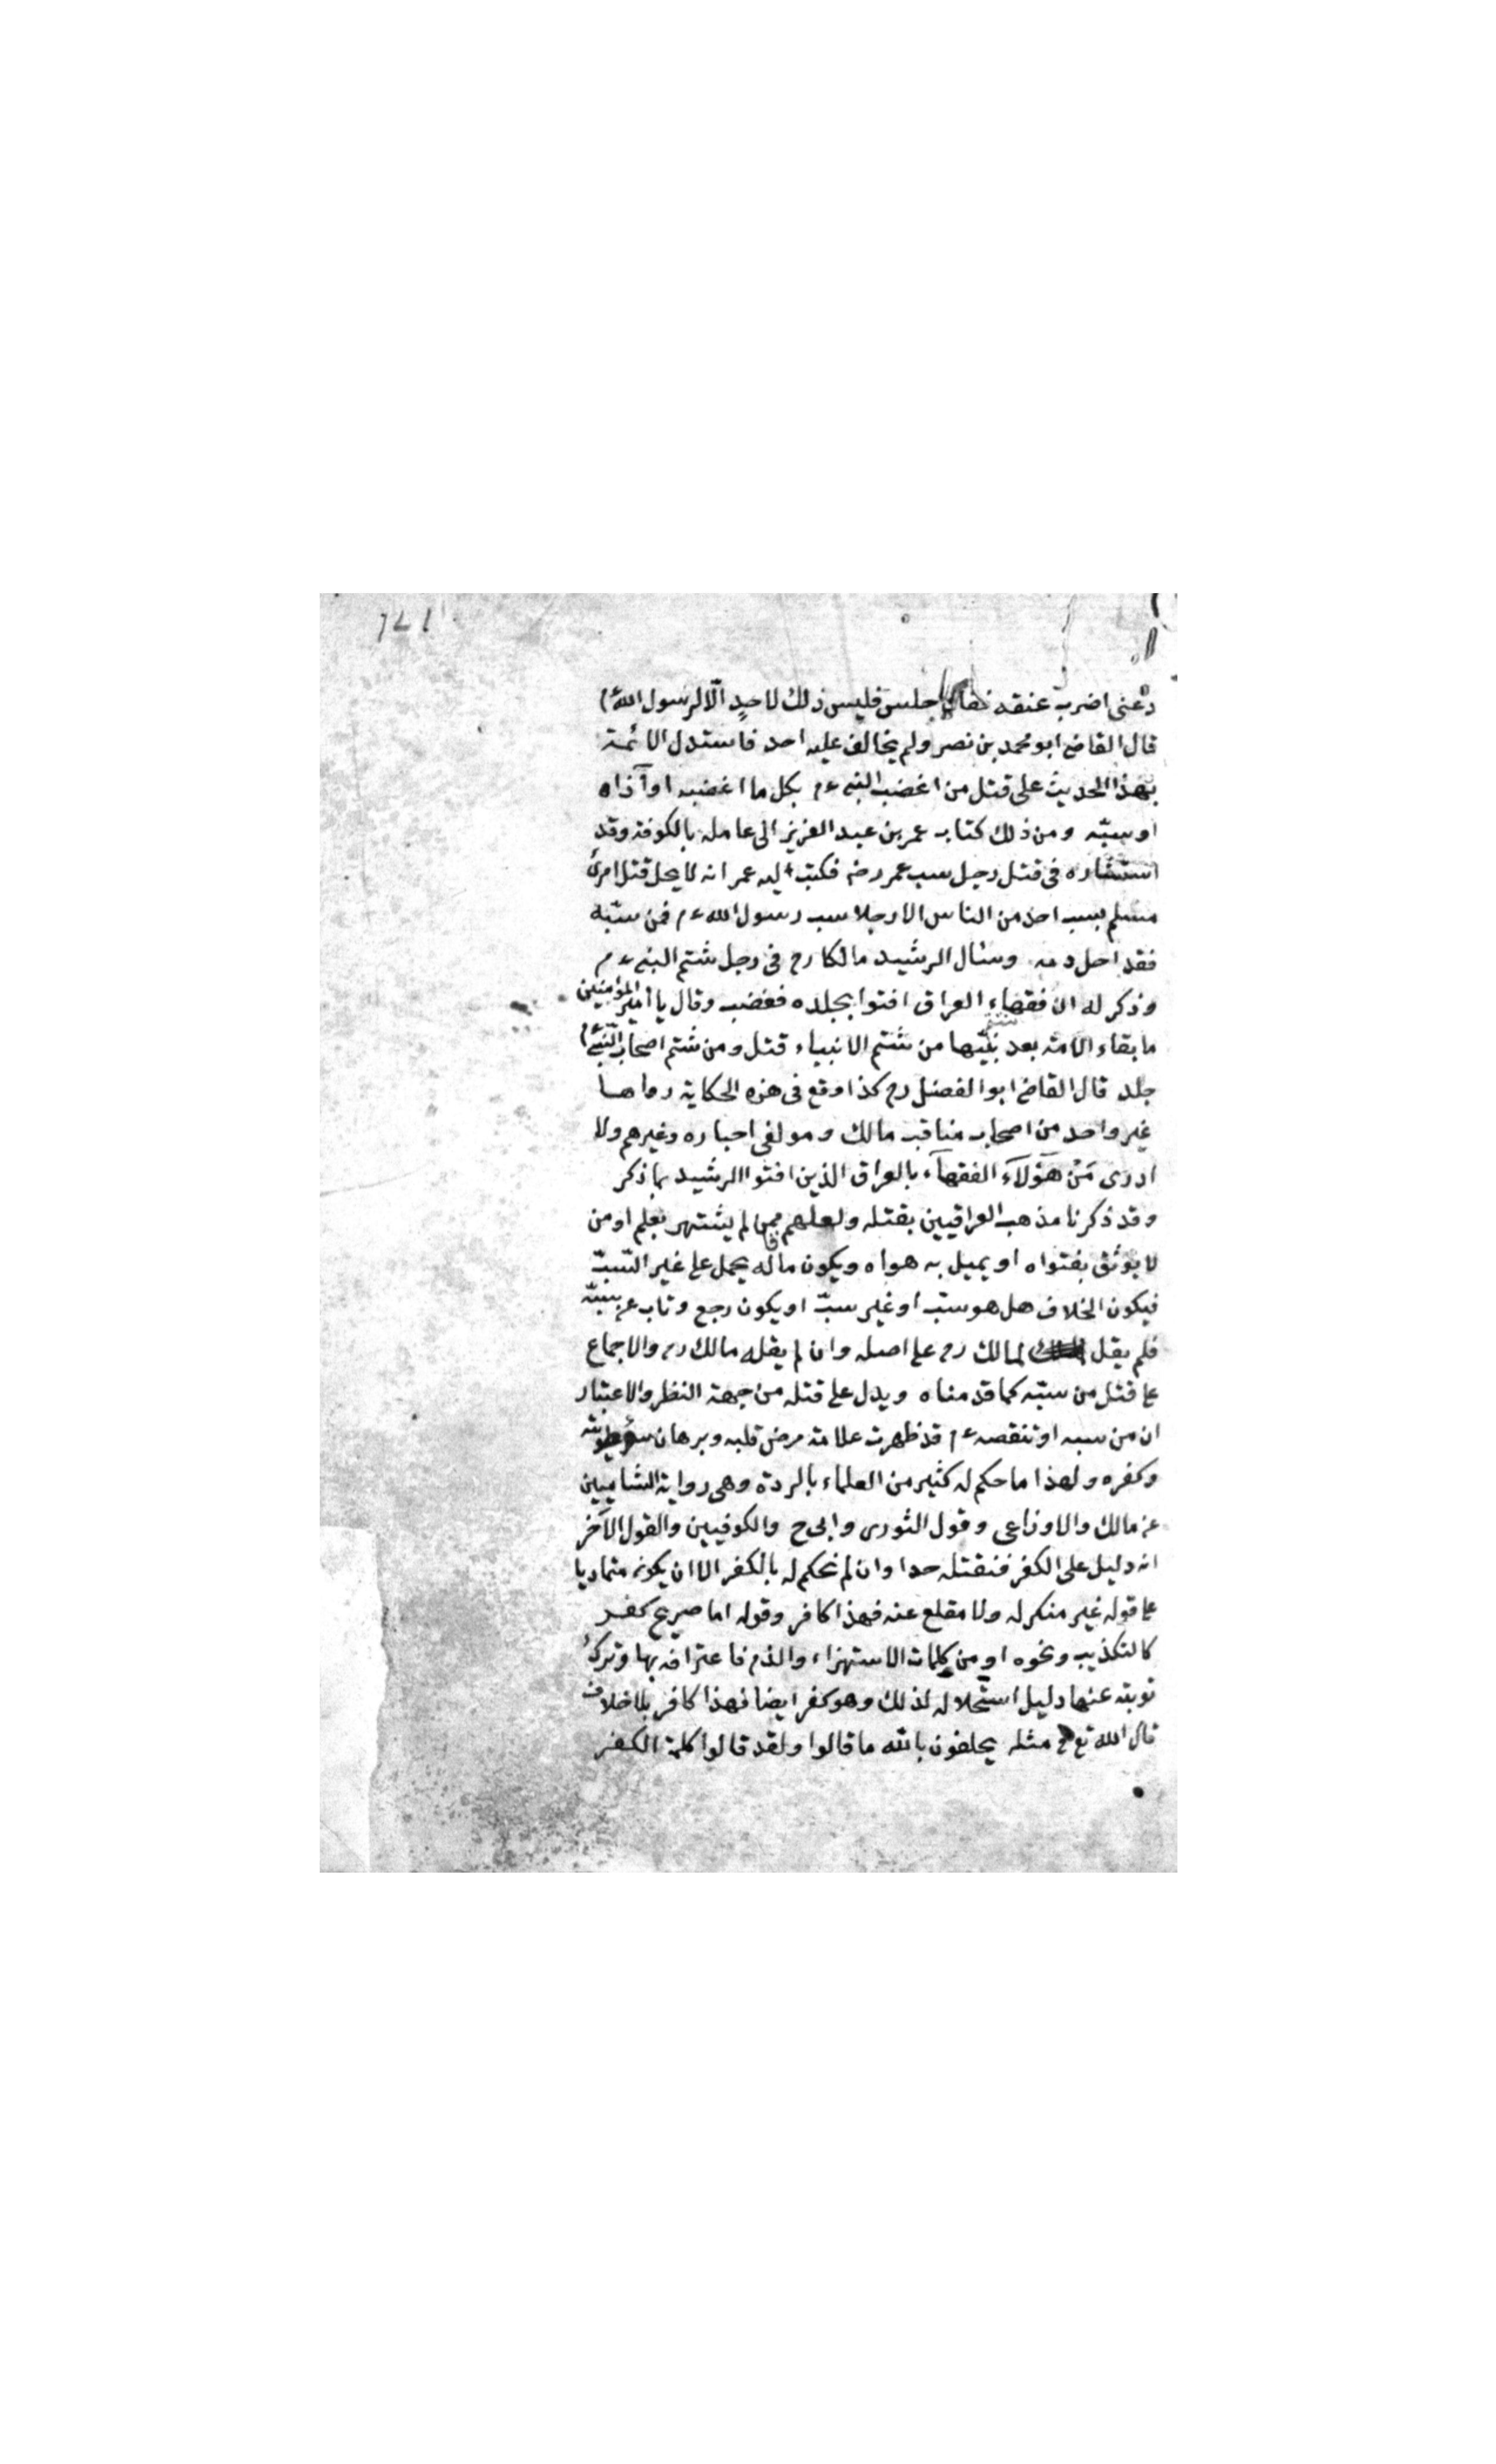 دعنى اضرب عنقه فقال اجلس فليس ذلك لاحدٍ الّا لرسول الله ءم
قال القاضى ابو محمد بن نصر ولم يخالف عليه احد فاستدل الائمة
بهذا الحديث على قتل من اغضب النبى ءم بكل ما اغضبه او آذاه
او سبّه ومن ذلك كتاب عمر بن عبد العزيز الى عامله بالكوفة وقد
استشاره فى قتل رجل سب عمر رضه فكتب اليه عمر انه لا يحل قتل امرئ
مسلم بسب احد من الناس الا رجلا سب رسول الله ءم فمن سبّه
فقد احل دمه وسئال الرشيد مالكا رح فى رجل شتم النبى ءم
وذكر له ان فقهاء العراق افتوا بجلده فغضب وقال يا أمير المؤمنين
ما بقاء الامة بعد نبيّها من شتم الانبياء قتل ومن شتم اصحاب النّبى ءم
جلد قال القاضى ابو الفضل رح كذا وقع فى هذه الحكاية رواها
غير واحد من اصحاب مناقب مالك ومولفى اخباره وغيرهم ولا
ادرى مَنْ هَؤلآءَ الفقهآء بالعراق الذين افتوا الرشيد بما ذكر
وقد ذكرنا مذهب العراقيين بقتله ولعلهم ممن لم يشتهر بعلم او من
لا يوثق بفتواه او يميل به هواه ويكون ما قاله يحمل على غير السّبّ
فيكون الخلاف هل هو سبّ او غير سبّ او يكون رجع وتاب عن سبّه
فلم يقل لمالك رح على اصله وان لم يقله مالك رح والاجماع
على قتل من سبّه كما قدمناه ويدل على قتله من جهة النظر والاعتبار
ان من سبه او تنقصه ءم قد ظهرت علامة مرض قلبه وبرهان سوء طويته
وكفره ولهذا ما حكم له كثير من العلماء بالردة وهى رواية الشاميين
عن مالك والاوزاعى وقول الثورى وابى ح والكوفيين والقول الآخر
انه دليل على الكفر فنقتله حدا وان لم نحكم له بالكفر الا ان يكون متماديا
على قوله غير منكر له ولا مقلع عنه فهذا كافر وقوله اما صريح كفر
كالتكذيب ونحوه او من كلمات الاستهزاء والذم فاعترافه بها وترك
توبته عنها دليل استحلاله لذلك وهو كفر ايضا فهذا كافر بلا خلاف
قال الله تع فى مثله يحلفون بالله ما قالوا ولقد قالوا كلمة الكفر